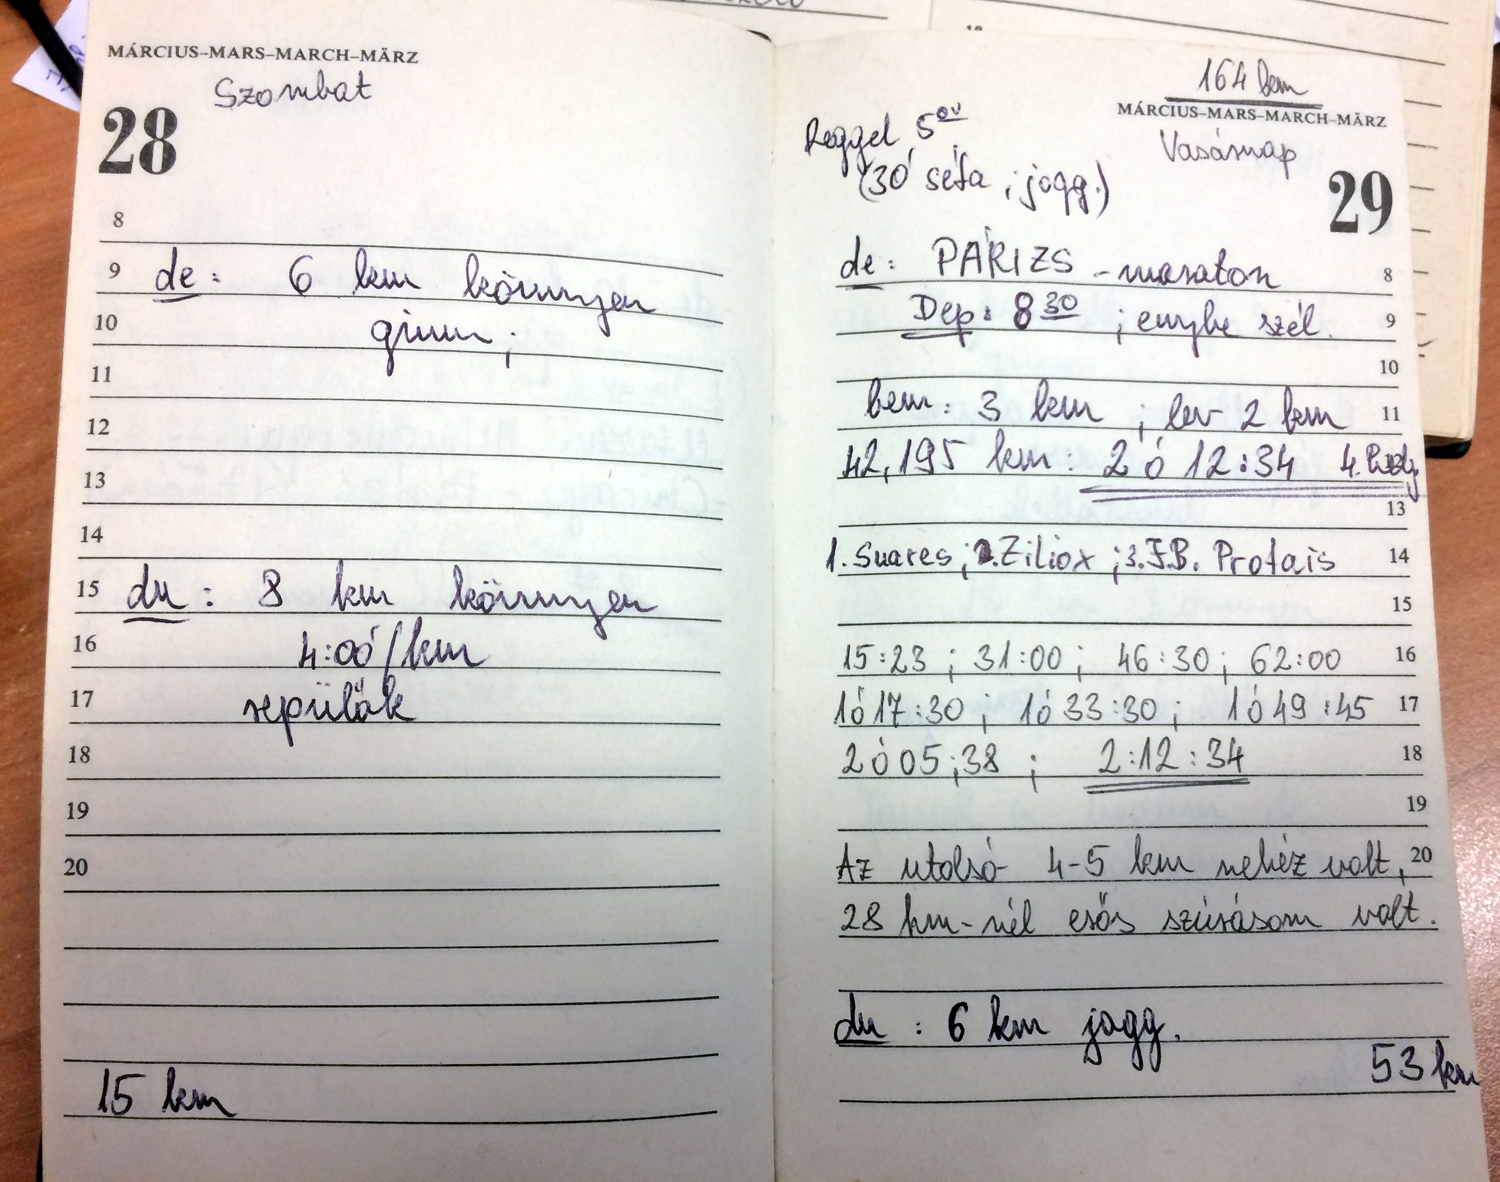 MÁRCIUS–MARS–MARCH–MÄRZ
Szombat
28
8
9 de: 6 km könnyen
10 gimn;
11
12
13
14
15 du: 8 km könnyen
16 4:00/km
17 repülők
18
19
20
15 km
164 km
MÁRCIUS–MARS–MARCH–MÄRZ
Reggel 5
Vasárnap
(30' séta; jogg.)
29
de: PÁRIZS -maraton 8
Dep: 8 30 ; enyhe szél. 9
10
bem: 3 km ; lev 2 km 11
42,195 km: 2 ó 12:34 4.
13
1. Suares; 2. Ziliox; 3. J.B. Protais 14
15
15:23 ; 31:00 ; 46:30; 62:00 16
1ó 17:30 ; 1ó 33:30; 1ó 49:45 17
2 ó 05;38 ; 2:12:34 18
19
Az utolsó 4-5 km nehéz volt, 20
28 km-nél erős szúrásom volt.
du : 6 km jogg.
53 km